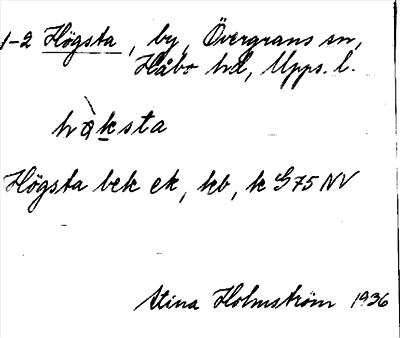 1-2 Högsta, by, Övergrans sn,
Håbo hd, Upps. l.
hàksta
Högsta bek ek, kb, k G75 NV
Stina Holmström 1936